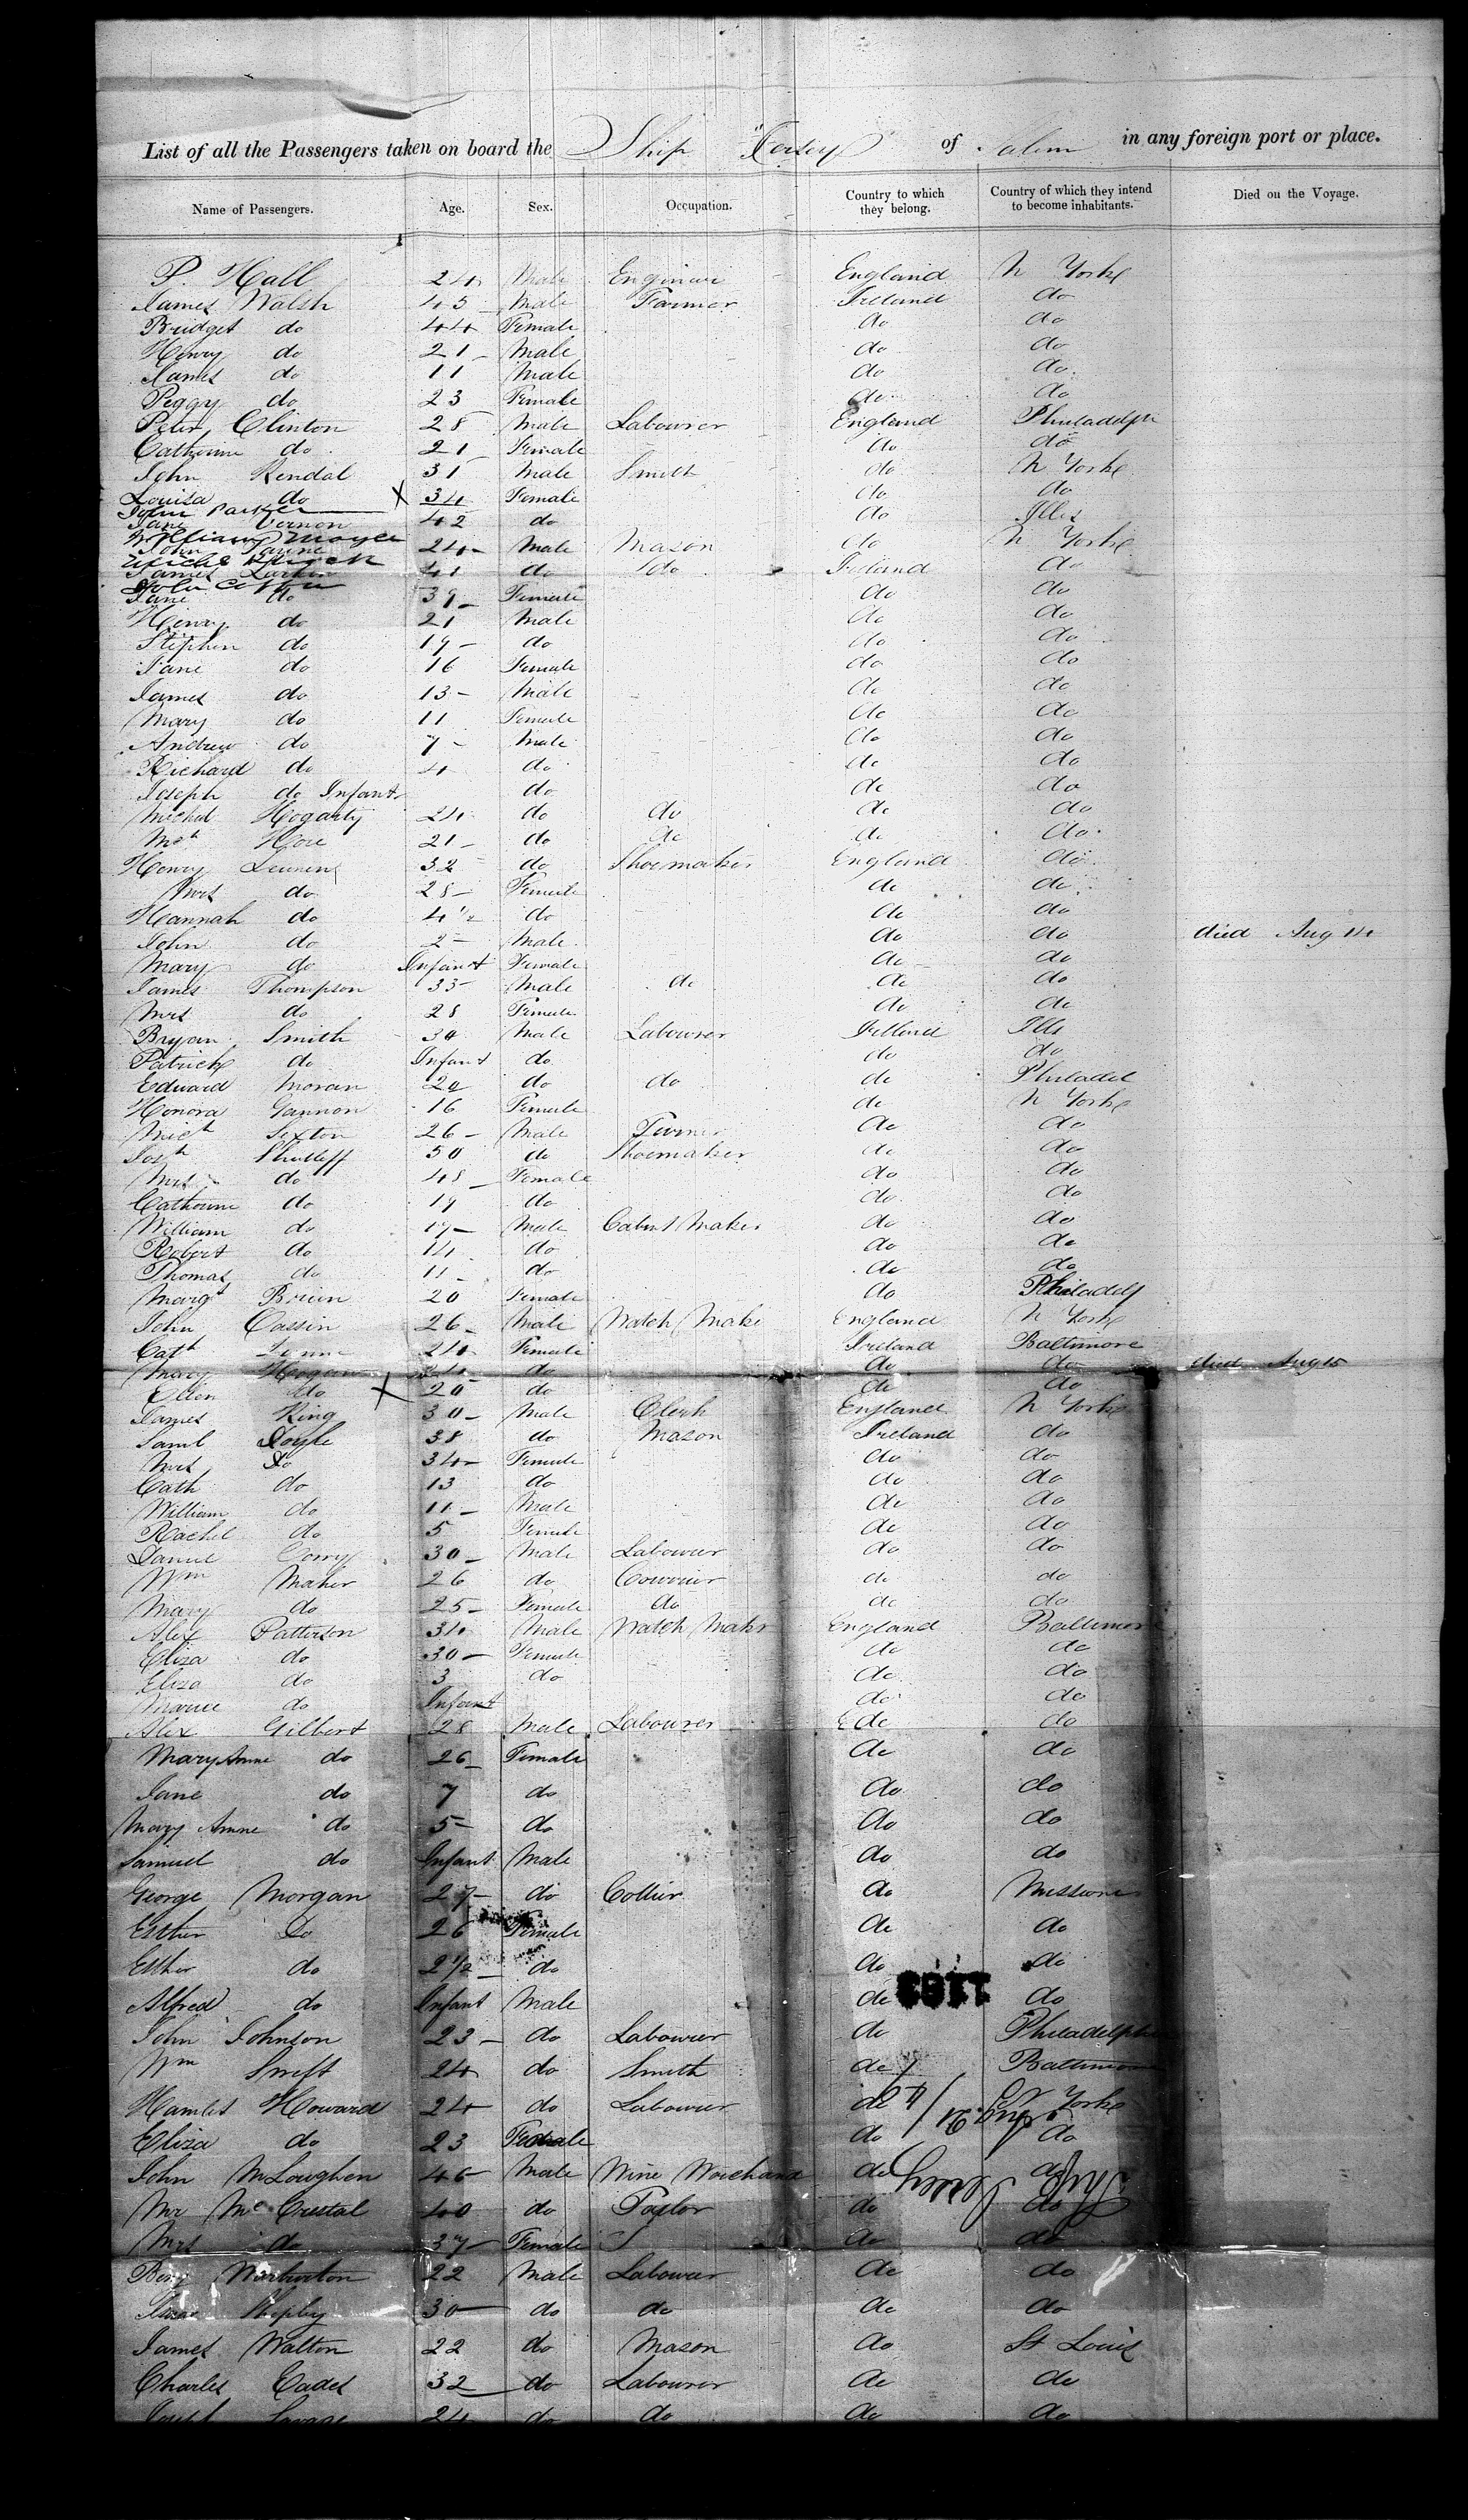 List of all the Passengers taken on board the Ship "Jersey" of Salem in any foreign port or place.
Name of Passengers. Age. Sex. Occupation. Country to which they belong. Country of which they intend to become inhabitants. Died on the Voyage.
P. Hall 24 Male Enginier England N York
James Walsh 45 Male Farmer Ireland do
Bridget do 44 Female do do
Henry do 21 Male do do
James do 11 Male do do
Peggy do 23 Female do do
Peter Clinton 28 Male Labourer England Philadelph
Catherine do 21 Female do do
John Kendal 31 Male Smith do N York
Louisa do X 34 Female do do
John Parker
Jane Vernon 42 do do Ills
William Moyer
John 24 Male Mason do N York
James Larkin 41 do do Ireland do
John
Jane do 39 Female do do
Henry do 21 Male do do
Stephen do 19 do do do
Jane do 16 Female do do
James do 13 Male do do
Mary do 11 Female do do
Andrew do 7 Male do do
Richard do 4 do do do
Joseph do Infant do do do
Michel Hogarty 24 do do do do
Mch Hore 21 do do do do
Henry 32 do Shoemaker England do
Mrs do 28 Female do do
Hannah do 4 1/2 do do do
John do 2 Male do do died Aug 14
Mary do Infant Female do do
James Thompson 33 Male do do do
Mrs do 28 Female do do
Bryan Smith 30 Male Labourer Irelend Ills
Patrick do Infant do do do
Edward Moran 20 do do do Philadel
Honora Gannon 16 Female do N York
Mich Sexton 26 Male do do
Josh 50 do Shoemaker do do
Mrs do 48 Female do do
Catherine do 19 do do do
William do 17 Male Cabint Maker do do
Robert do 14 do do do
Thomas do 11 do do do
Margt Brien 20 Female do Philadelf
John Cassin 26 Male Watch Make England N York
Cath 24 Female Ireland Baltimore
Mary Hogan 24 do do do died Aug 15
Ellen do X 20 do do do
James King 30 Male Clerk England N York
Saml Doyle 38 do Mason Ireland do
Mrs Do 34 Female do do
Cath do 13 do do do
William do 11 Male do do
Rachel do 5 Female do do
Daniel 30 Male Labourer do do
Wm Maher 26 do Courrier do do
Mary do 25 Female do do do
Alex Patterson 34 Male Watch Makr England Baltimore
Eliza do 30 Female do do
Eliza do 3 do do do
do Infant do do
Alex Gilbert 28 Male Labourer E do do
Mary Anne do 26 Female do do
Jane do 7 do do do
Mary Anne do 5 do do do
Samuel do Infant Male do do
George Morgan 27 do Collier do Missouri
Esther Do 26 Female do do
Esther do 2 1/2 do do do
Alfred do Infant Male do do
John Johnson 23 do Labourer do Philadelphia
Wm Swift 24 do Smith do Baltimore
Hamlet Howard 24 do Labourer do N York
Eliza do 23 Female do do
John McLoughen 46 Male Wine Merchant do do
Mr McCrestal 40 do Taylor do do
Mrs do 37 Female do do
Benj Warburton 22 Male Labourer do do
30 do do do do
James Walton 22 do Mason do St Louis
Charles Cadet 32 do Labourer do do
Joseph Savage 24 do do do do